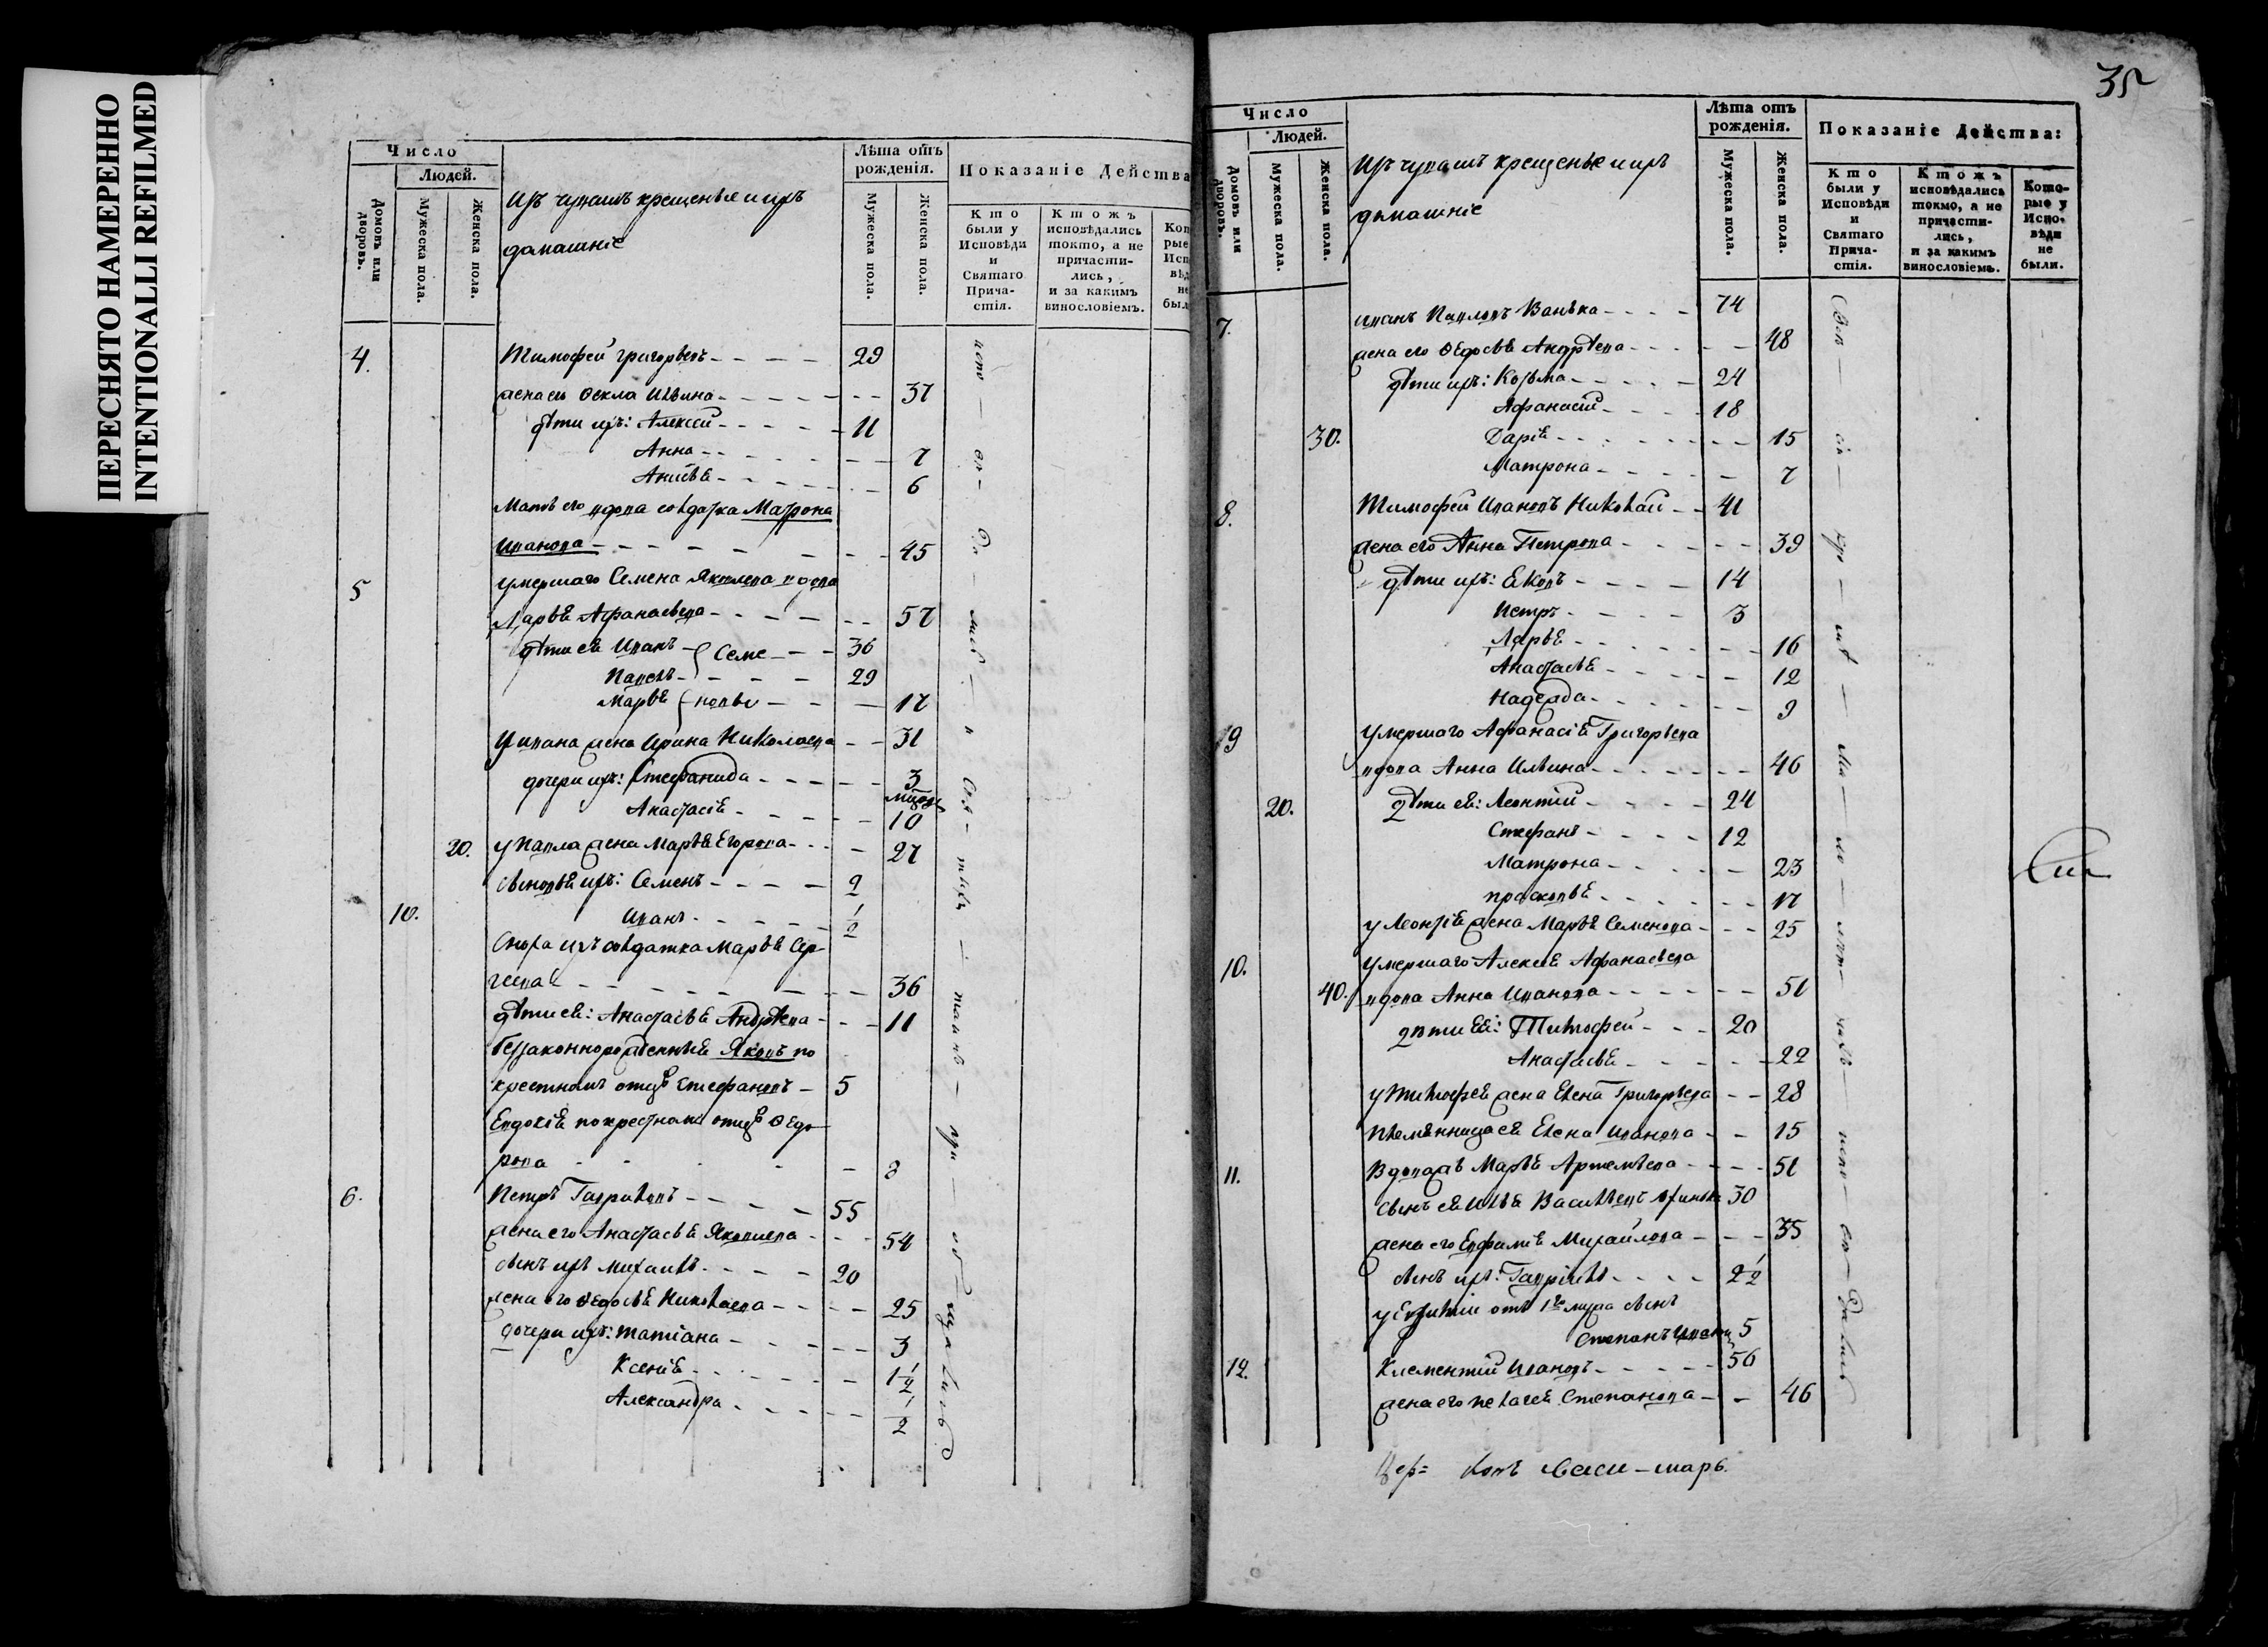 ПЕРЕСНЯТО НАМЕРЕННО
INTENTIONALLI REFILMED
Число
Людей.
Домовъ или дворовъ.
Мужеска пола.
Женска пола.
Изъ чувашъ крещеные и ихъ
домашніе
Лѣта отъ рожденія.
Мужеска пола.
Женска пола.
Показаніе Действа
Кто были у Исповѣди и Святаго Причастія.
Ктожъ исповѣдались токмо, а не причастились, и за какимъ винословіемъ.
4. Тимофей Григорьевъ 29
жена ево Фекла Ильина 37
дѣти ихъ: Алексѣй 11
Анна 7
Анисья 6
Мать его вдова солдатка Матрона
Иванова 45
5 умершаго Семена Яковлева вдова
Марья Афанасьева 57
дѣти ея Иванъ Семе 36
Павелъ 29
Марья новы 17
у Ивана жена Ирина Николаева 31
дочери ихъ: Стефанида 3
Анастасія 10
20. у Павла жена Марья Егорова 27
сыновья ихъ: Семенъ 2
10. Иванъ 1/2
Сноха ихъ солдатка Марья Сер-
геева 36
дѣти ея: Анастасья Андреева 11
Беззаконнорожденные Яковъ по
крестномъ отцѣ Стефановъ 5
Евдокія по крестномъ отцѣ Федо
рова 8
6. Петръ Гавриловъ 55
жена его Анастасья Яковлева 54
сынъ ихъ Михаилъ 20
жена его Федосья Николаева 25
дочери ихъ: Татіана 3
Ксенія 1 1/2
Александра 1/2
35
Число
Людей.
Домовъ или дворовъ.
Мужеска пола.
Женска пола.
Изъ чувашъ крещеные и ихъ
домашніе
Лѣта отъ рожденія.
Мужеска пола.
Женска пола.
Показаніе Действа:
Кто были у Исповѣди и Святаго Причастія.
Ктожъ исповѣдались токмо, а не причастились, и за какимъ винословіемъ.
Которые у Исповѣди не были.
7. Иванъ Павловъ Ванька 74
жена его Федосья Андрѣева 48
дѣти ихъ: Козьма 24
Афанасій 18
30. Дарія 15
Матрона 7
8. Тимофей Ивановъ Николай 41
жена его Анна Петрова 39
дѣти ихъ: Яковъ 14
Петръ 3
Марья 16
Анастасья 12
Надежда 9
9 умершаго Афанасія Григорьева
вдова Анна Ильина 46
20. дѣти ея: Леонтій 24
Стефанъ 12
Матрона 23
Прасковья 17
у Леонтія жена Марья Семенова 25
10. умершаго Алексѣя Афанасьева
40. вдова Анна Иванова 51
дѣти ея: Тимофей 20
Анастасья 22
у Тимофея жена Елена Григорьева 28
племянница ея Елена Иванова 15
11. Вдова Марья Артемьева 51
сынъ ея Илья Васильевъ 30
жена его Евфимія Михайлова 35
сынъ ихъ: Гавріилъ 2 1/2
у Евфиміи отъ 1го мужа сынъ
Степанъ Ивановъ 5
12. Клементій Ивановъ 56
жена его Пелагея Степанова 46